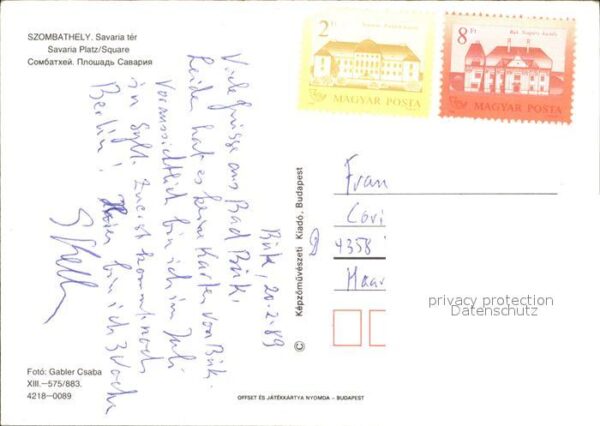 SZOMBATHELY. Savaria tér
Savaria Platz/Square
Сомбатхей. Площадь Савария
2 Ft
MAGYAR POSTA
8 Ft
MAGYAR POSTA
Bük, 20.2.89
Viele Grüsse aus Bad Bük.
Leider hat es keine Karten von Bük.
Voraussichtlich bin ich im Juli
in Sylt. Zuerst kommt noch
Berlin! bin ich 3 Woche
© Képzőművészeti Kiadó, Budapest
Frau
D 4358
Haar
privacy protection
Datenschutz
Fotó: Gabler Csaba
XIII.–575/883.
4218–0089
OFFSET ÉS JÁTÉKKÁRTYA NYOMDA – BUDAPEST